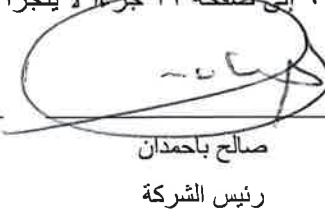 إلى صفحة ٢٢ جزءا لا يتجزأ
صالح باحمدان
رئيس الشركة